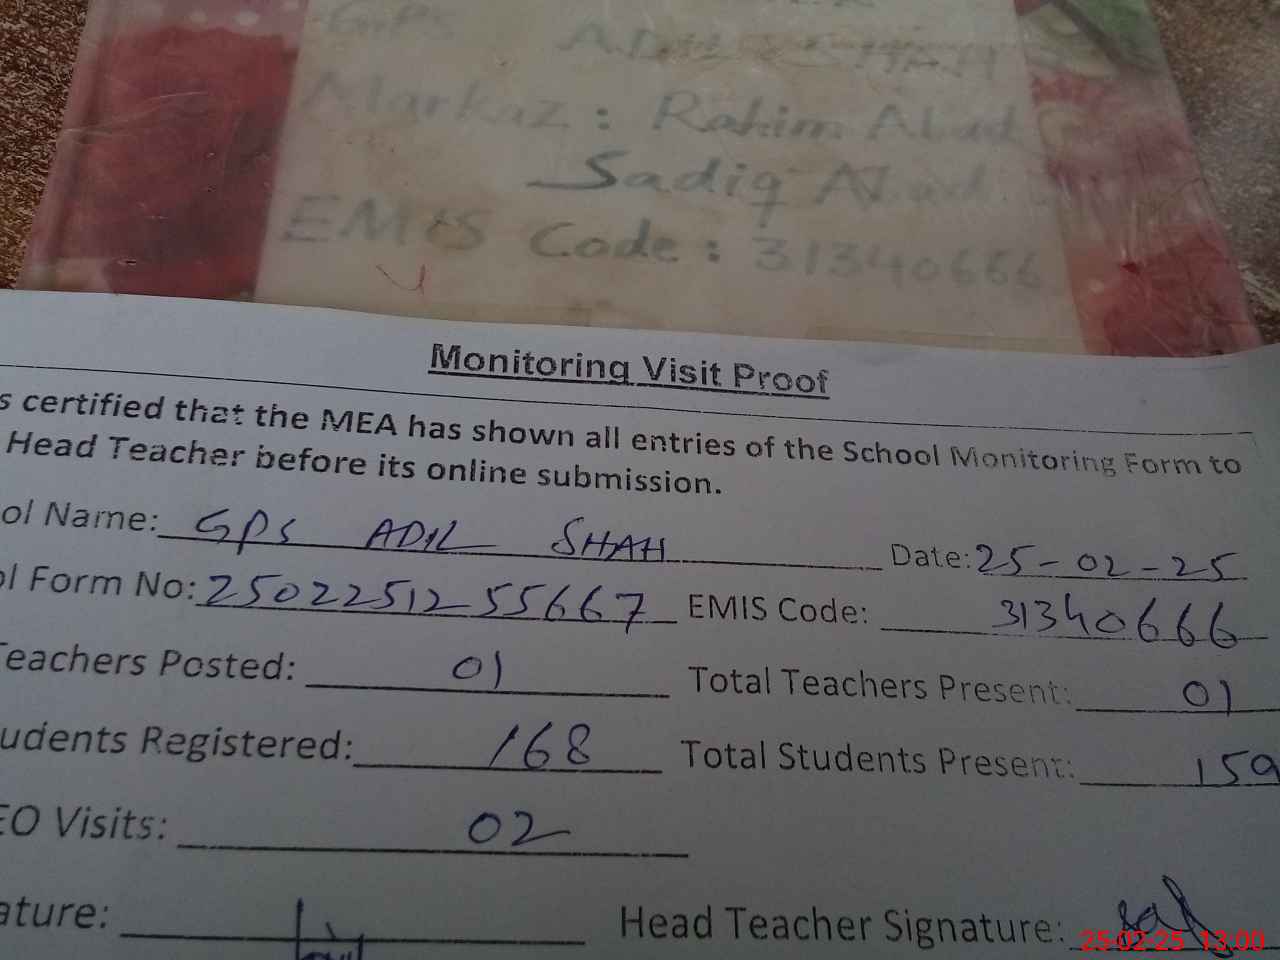 GPS ADIL SHAH
Markaz : Rahim Abad
Sadiq Abad
EMIS Code : 31340666
Monitoring Visit Proof
s certified that the MEA has shown all entries of the School Monitoring Form to
Head Teacher before its online submission.
ol Name: GPS ADIL SHAH Date: 25-02-25
ol Form No: 25022512 55667 EMIS Code: 31340666
Teachers Posted: 01 Total Teachers Present: 01
udents Registered: 168 Total Students Present: 159
EO Visits: 02
ature: Head Teacher Signature:
25-02-25 13:00